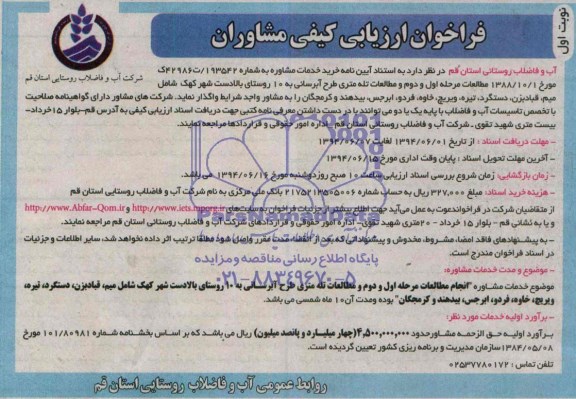 نوبت اول
فراخوان ارزیابی کیفی مشاوران
شرکت آب و فاضلاب روستایی استان قم
آب و فاضلاب روستائی استان قم در نظر دارد به استناد آیین نامه خرید خدمات مشاوره به شماره ۱۹۳۵۴۲/ت۴۲۹۸۶ک
مورخ ۱۳۸۸/۱۰/۱ مطالعات مرحله اول و دوم و مطالعات تله متری طرح آبرسانی به ۱۰ روستای بالادست شهر کهک شامل
میم، قبادبزن، دستگرد، تیره، ویریج، خاوه، فردو، ابرجس، بیدهند و کرمجگان را به مشاور واجد شرایط واگذار نماید. شرکت های مشاور دارای گواهینامه صلاحیت
با تخصص تاسیسات آب و فاضلاب با پایه یک یا دو می توانند با در دست داشتن معرفی نامه کتبی جهت دریافت اسناد ارزیابی کیفی به آدرس قم-بلوار ۱۵خرداد-
بیست متری شهید تقوی - شرکت آب و فاضلاب روستائی استان قم - اداره امور حقوقی و قراردادها مراجعه نمایند.
- مهلت دریافت اسناد : از تاریخ ۱۳۹۴/۰۶/۰۱ لغایت ۱۳۹۴/۰۶/۰۷
- آخرین مهلت تحویل اسناد : پایان وقت اداری مورخ ۱۳۹۴/۰۶/۱۵
- زمان بازگشایی: زمان شروع بررسی اسناد ارزیابی ساعت ۱۰ صبح روز دوشنبه مورخ ۱۳۹۴/۰۶/۱۶ می باشد.
- هزینه خرید اسناد: مبلغ ۳۲۷,۰۰۰ ریال به حساب شماره ۲۱۷۵۲۱۳۵۰۵۰۰۶ بانک ملی مرکزی به نام شرکت آب و فاضلاب روستایی استان قم
از متقاضیان شرکت در فراخوان دعوت به عمل می آید جهت اطلاع بیشتر از جزئیات فراخوان به سایت های http://www.iets.mporg.ir و http://www.Abfar-Qom.ir
و یا به نشانی قم - بلوار ۱۵ خرداد - ۲۰متری شهید تقوی- اداره امور حقوقی و قراردادهای شرکت آب و فاضلاب روستایی استان قم مراجعه نمایند.
- به پیشنهادهای فاقد امضا، مشروط، مخدوش و پیشنهاداتی که بعد از انقضا مدت مقرر واصل شود مطلقا ترتیب اثر داده نخواهد شد، سایر اطلاعات و جزئیات
در اسناد فراخوان مندرج است.
- موضوع و مدت خدمات مشاوره:
موضوع خدمات مشاوره "انجام مطالعات مرحله اول و دوم و مطالعات تله متری طرح آبرسانی به ۱۰ روستای بالادست شهر کهک شامل میم، قبادبزن، دستگرد، تیره،
ویریج، خاوه، فردو، ابرجس، بیدهند و کرمجگان" بوده ومدت آن ۱۰ ماه شمسی می باشد.
- برآورد اولیه خدمات مورد نظر:
برآورد اولیه حق الزحمه مشاور حدود ۴,۵۰۰,۰۰۰,۰۰۰(چهار میلیارد و پانصد میلیون) ریال می باشد که بر اساس بخشنامه شماره ۱۰۱/۸۰۹۸۱ مورخ
۱۳۸۴/۰۵/۰۸ سازمان مدیریت و برنامه ریزی کشور تعیین گردیده است.
- تلفن تماس: ۰۲۵۳۷۷۸۰۱۷۲
روابط عمومی آب و فاضلاب روستایی استان قم
ParsNamadData
پایگاه اطلاع رسانی مناقصه و مزایده
۰۲۱-۸۸۳۴۹۶۷۰-۵